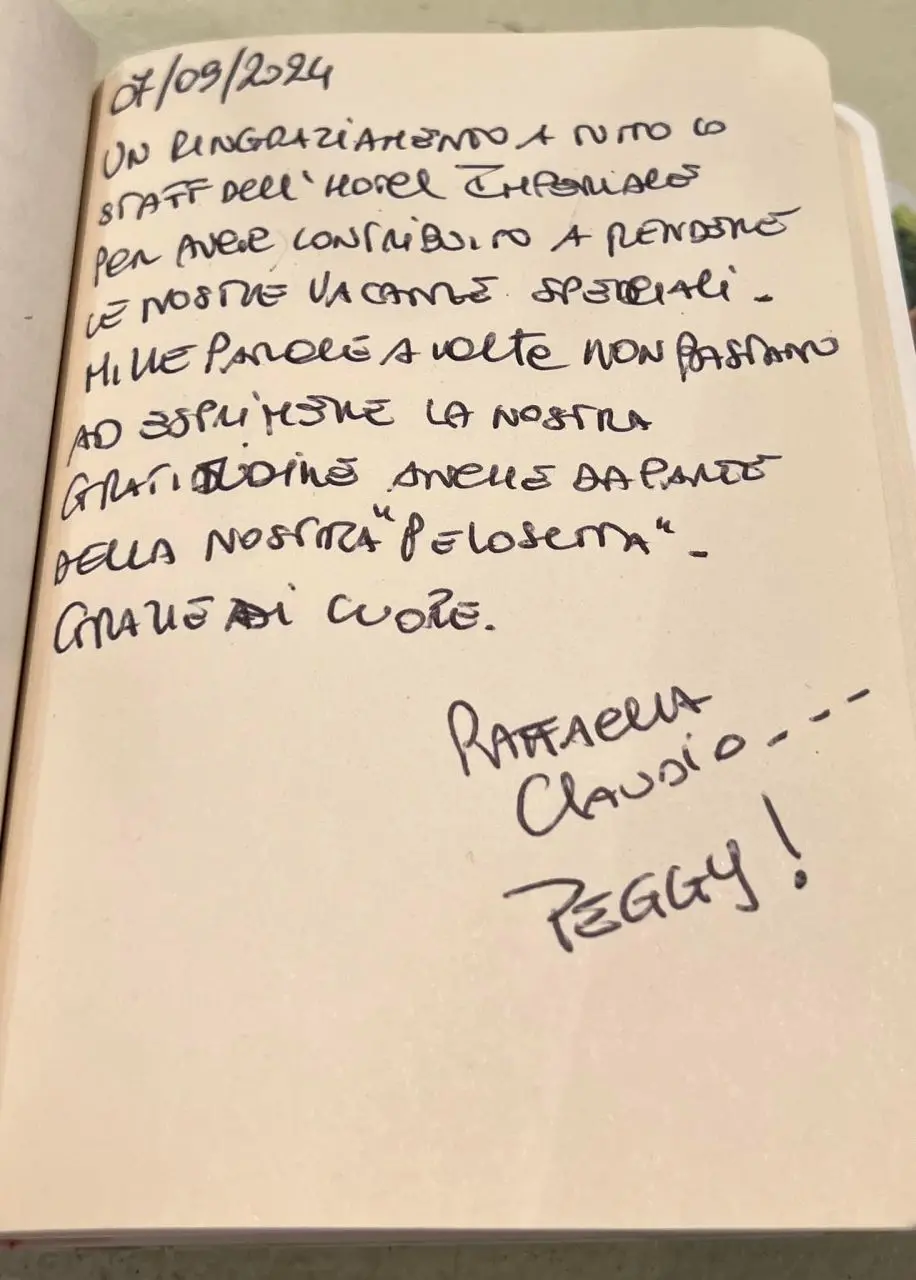 07/09/2024
UN RINGRAZIAMENTO A TUTTO LO
STAFF DELL'HOTEL IMPERIALE
PER AVERE CONTRIBUITO A RENDERE
LE NOSTRE VACANZE SPECIALI -
MILLE PAROLE A VOLTE NON BASTANO
AD ESPRIMERE LA NOSTRA
GRATITUDINE ANCHE DA PARTE
DELLA NOSTRA "PELOSETTA" -
GRAZIE DI CUORE.
RAFFAELLA
CLAUDIO - - - -
PEGGY!